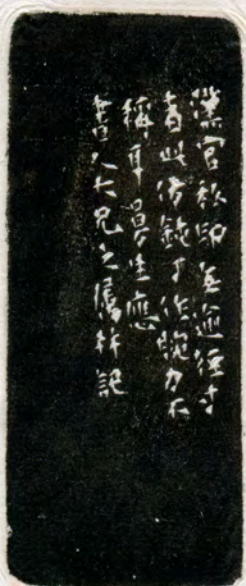 漢官私印無逾徑寸
者此仿鈍丁作腕力不
稱耳曼生應
書八大兄之屬并記